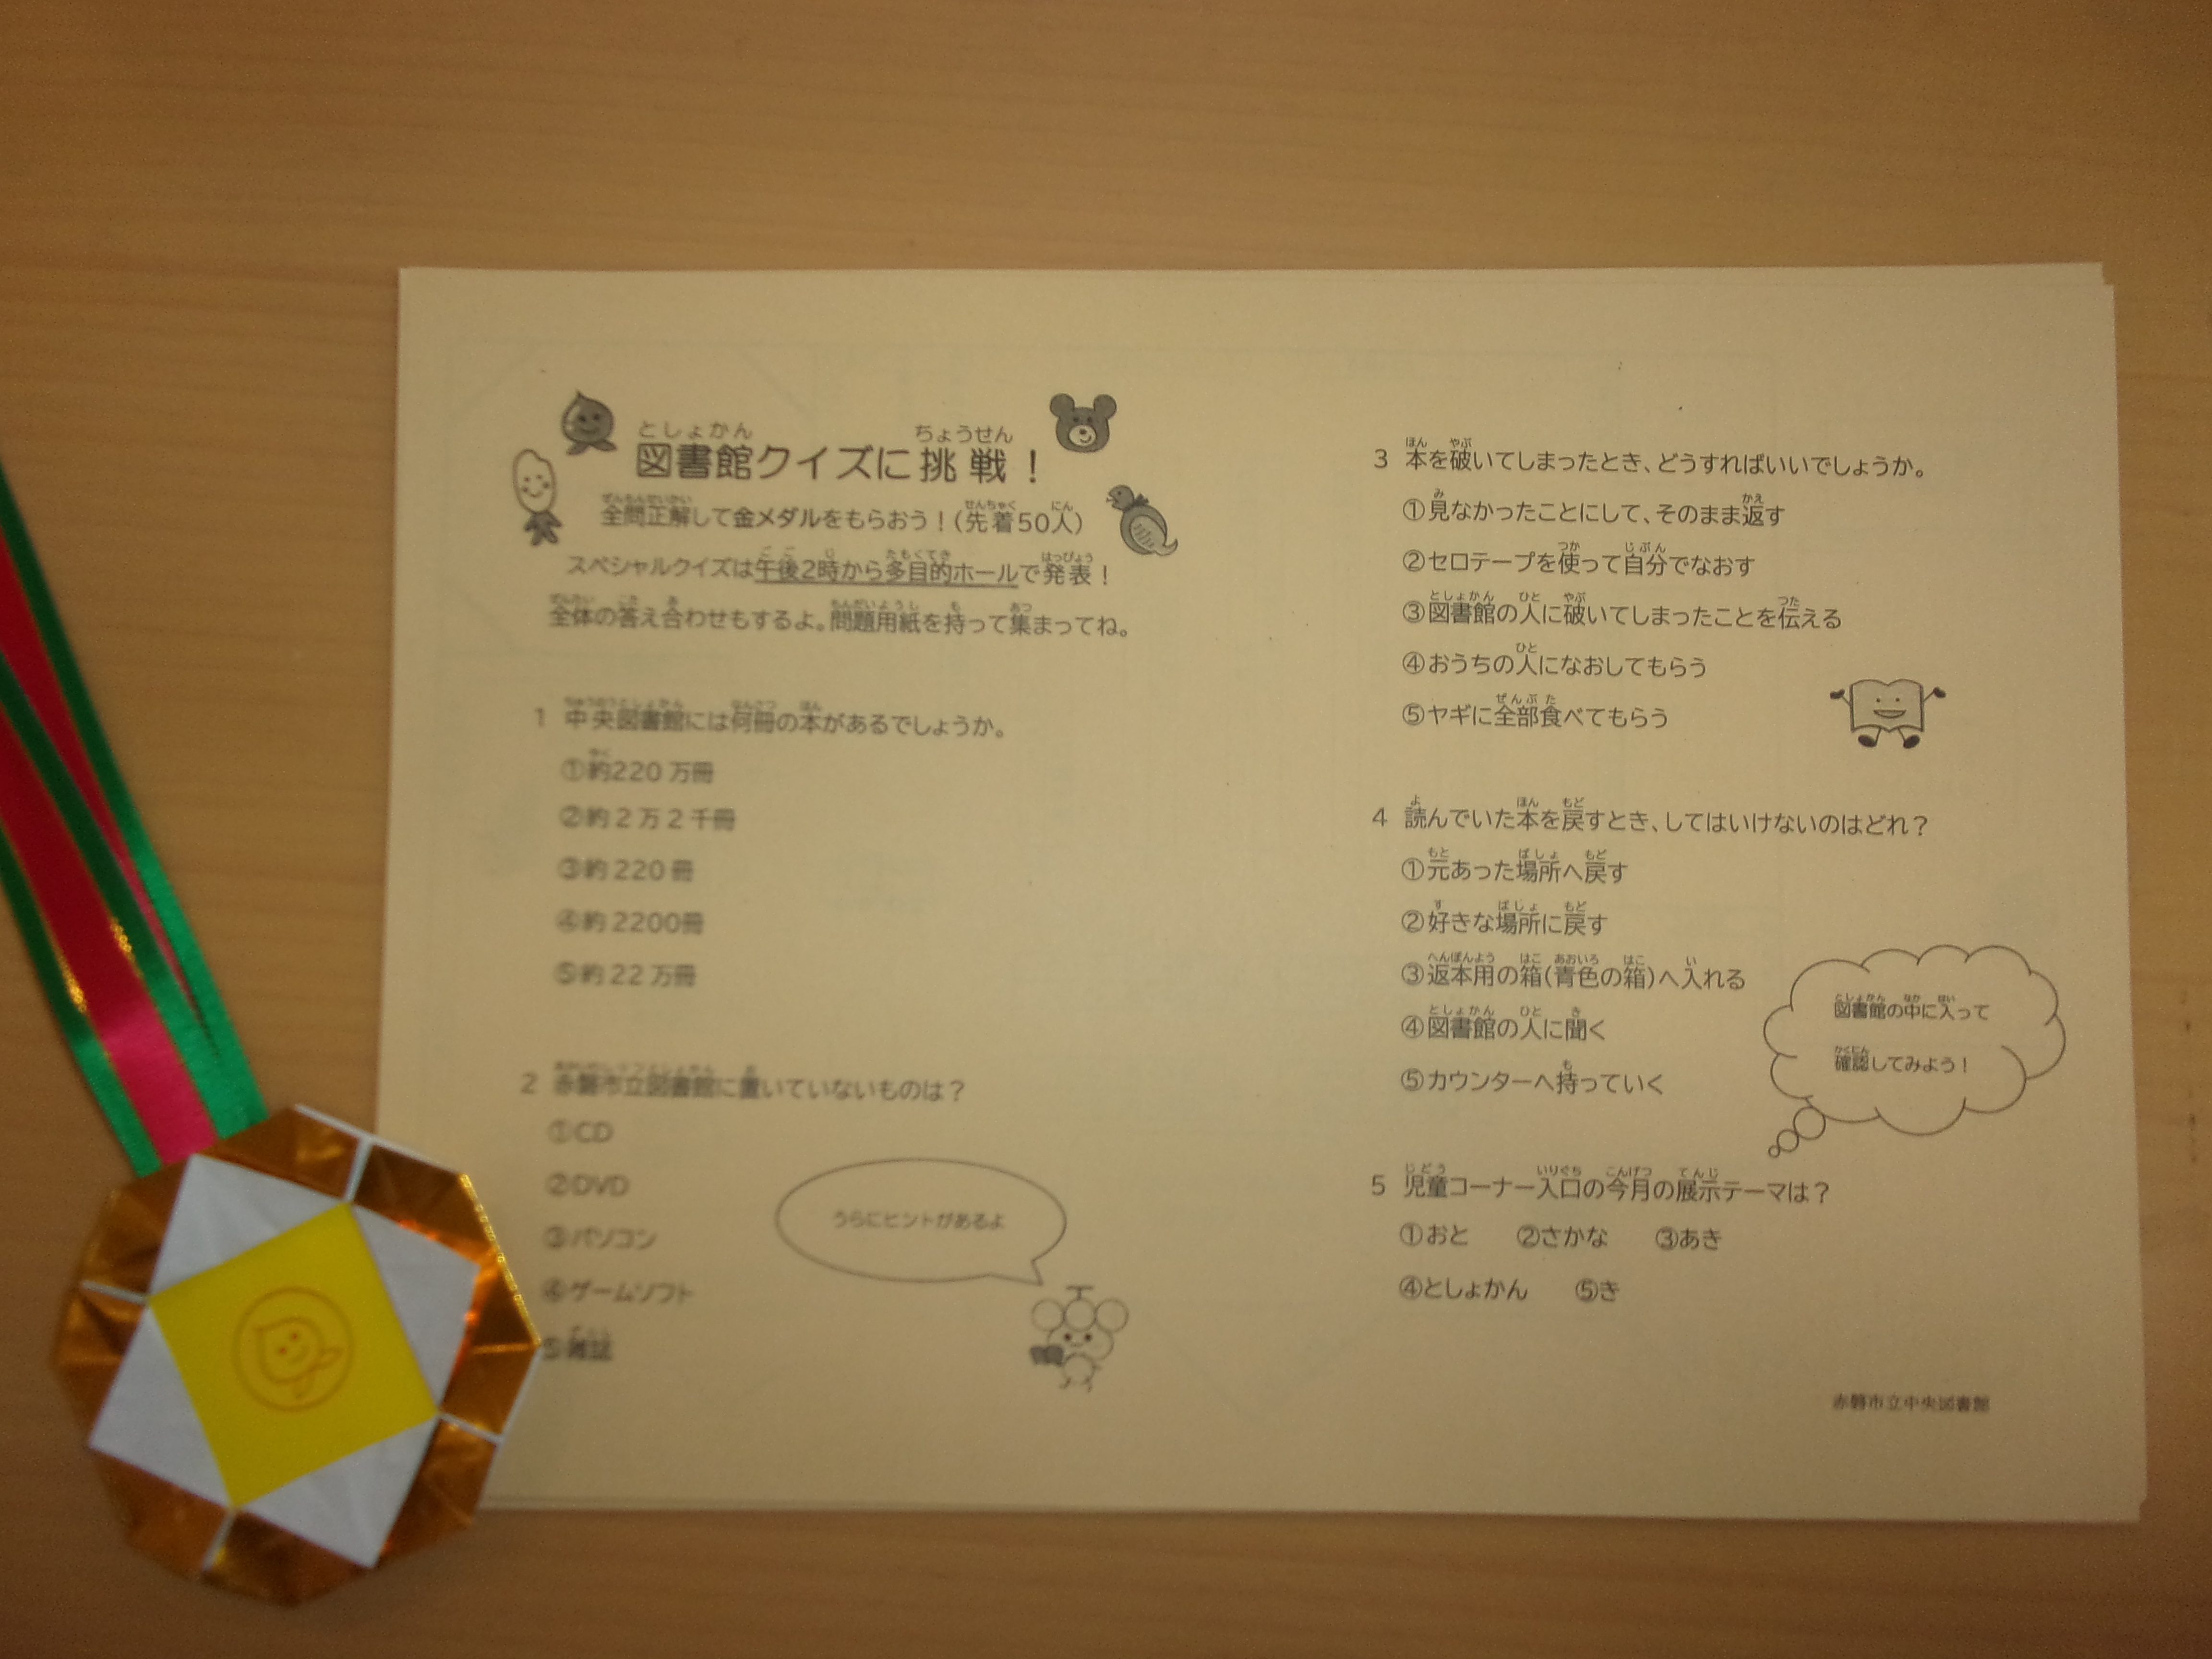 図書館クイズに挑戦！
全問正解して金メダルをもらおう！（先着50人）
スペシャルクイズは午後2時から多目的ホールで発表！
全体の答え合わせもするよ。問題用紙を持って集まってね。
1 中央図書館には何冊の本があるでしょうか。
①約220万冊
②約2万2千冊
③約220冊
④約2200冊
⑤約22万冊
2 赤磐市立図書館に置いていないものは？
①CD
②DVD
③パソコン
④ゲームソフト
⑤雑誌
うらにヒントがあるよ
3 本を破いてしまったとき、どうすればいいでしょうか。
①見なかったことにして、そのまま返す
②セロテープを使って自分でなおす
③図書館の人に破いてしまったことを伝える
④おうちの人になおしてもらう
⑤ヤギに全部食べてもらう
4 読んでいた本を戻すとき、してはいけないのはどれ？
①元あった場所へ戻す
②好きな場所に戻す
③返本用の箱（青色の箱）へ入れる
④図書館の人に聞く
⑤カウンターへ持っていく
図書館の中に入って
確認してみよう！
5 児童コーナー入口の今月の展示テーマは？
①おと ②さかな ③あき
④としょかん ⑤き
赤磐市立中央図書館